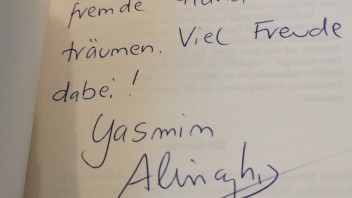 fremde
träumen. Viel Freude
dabei!
Yasmin